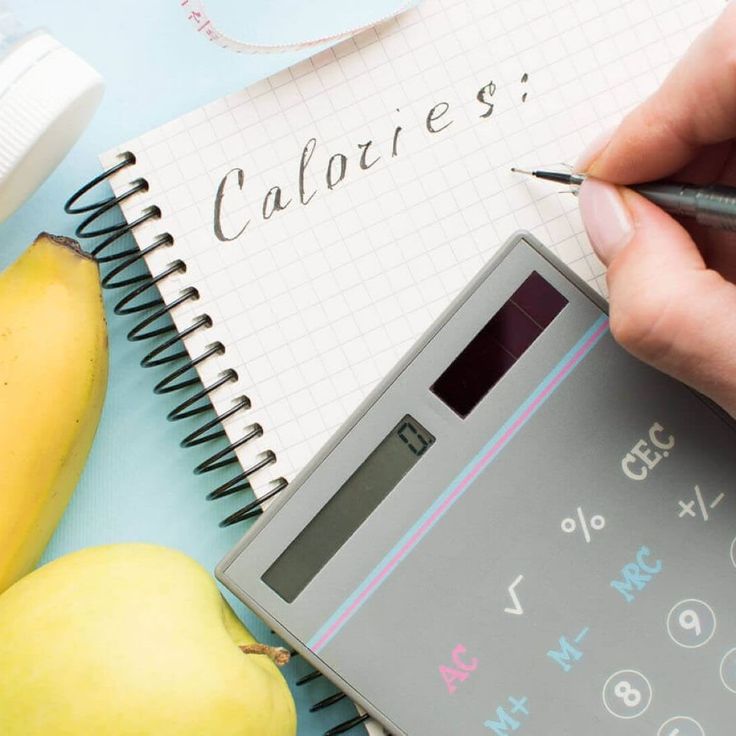 Calories:
0.
CE.C
% +/-
√ MRC
AC M- 9
M+ 8